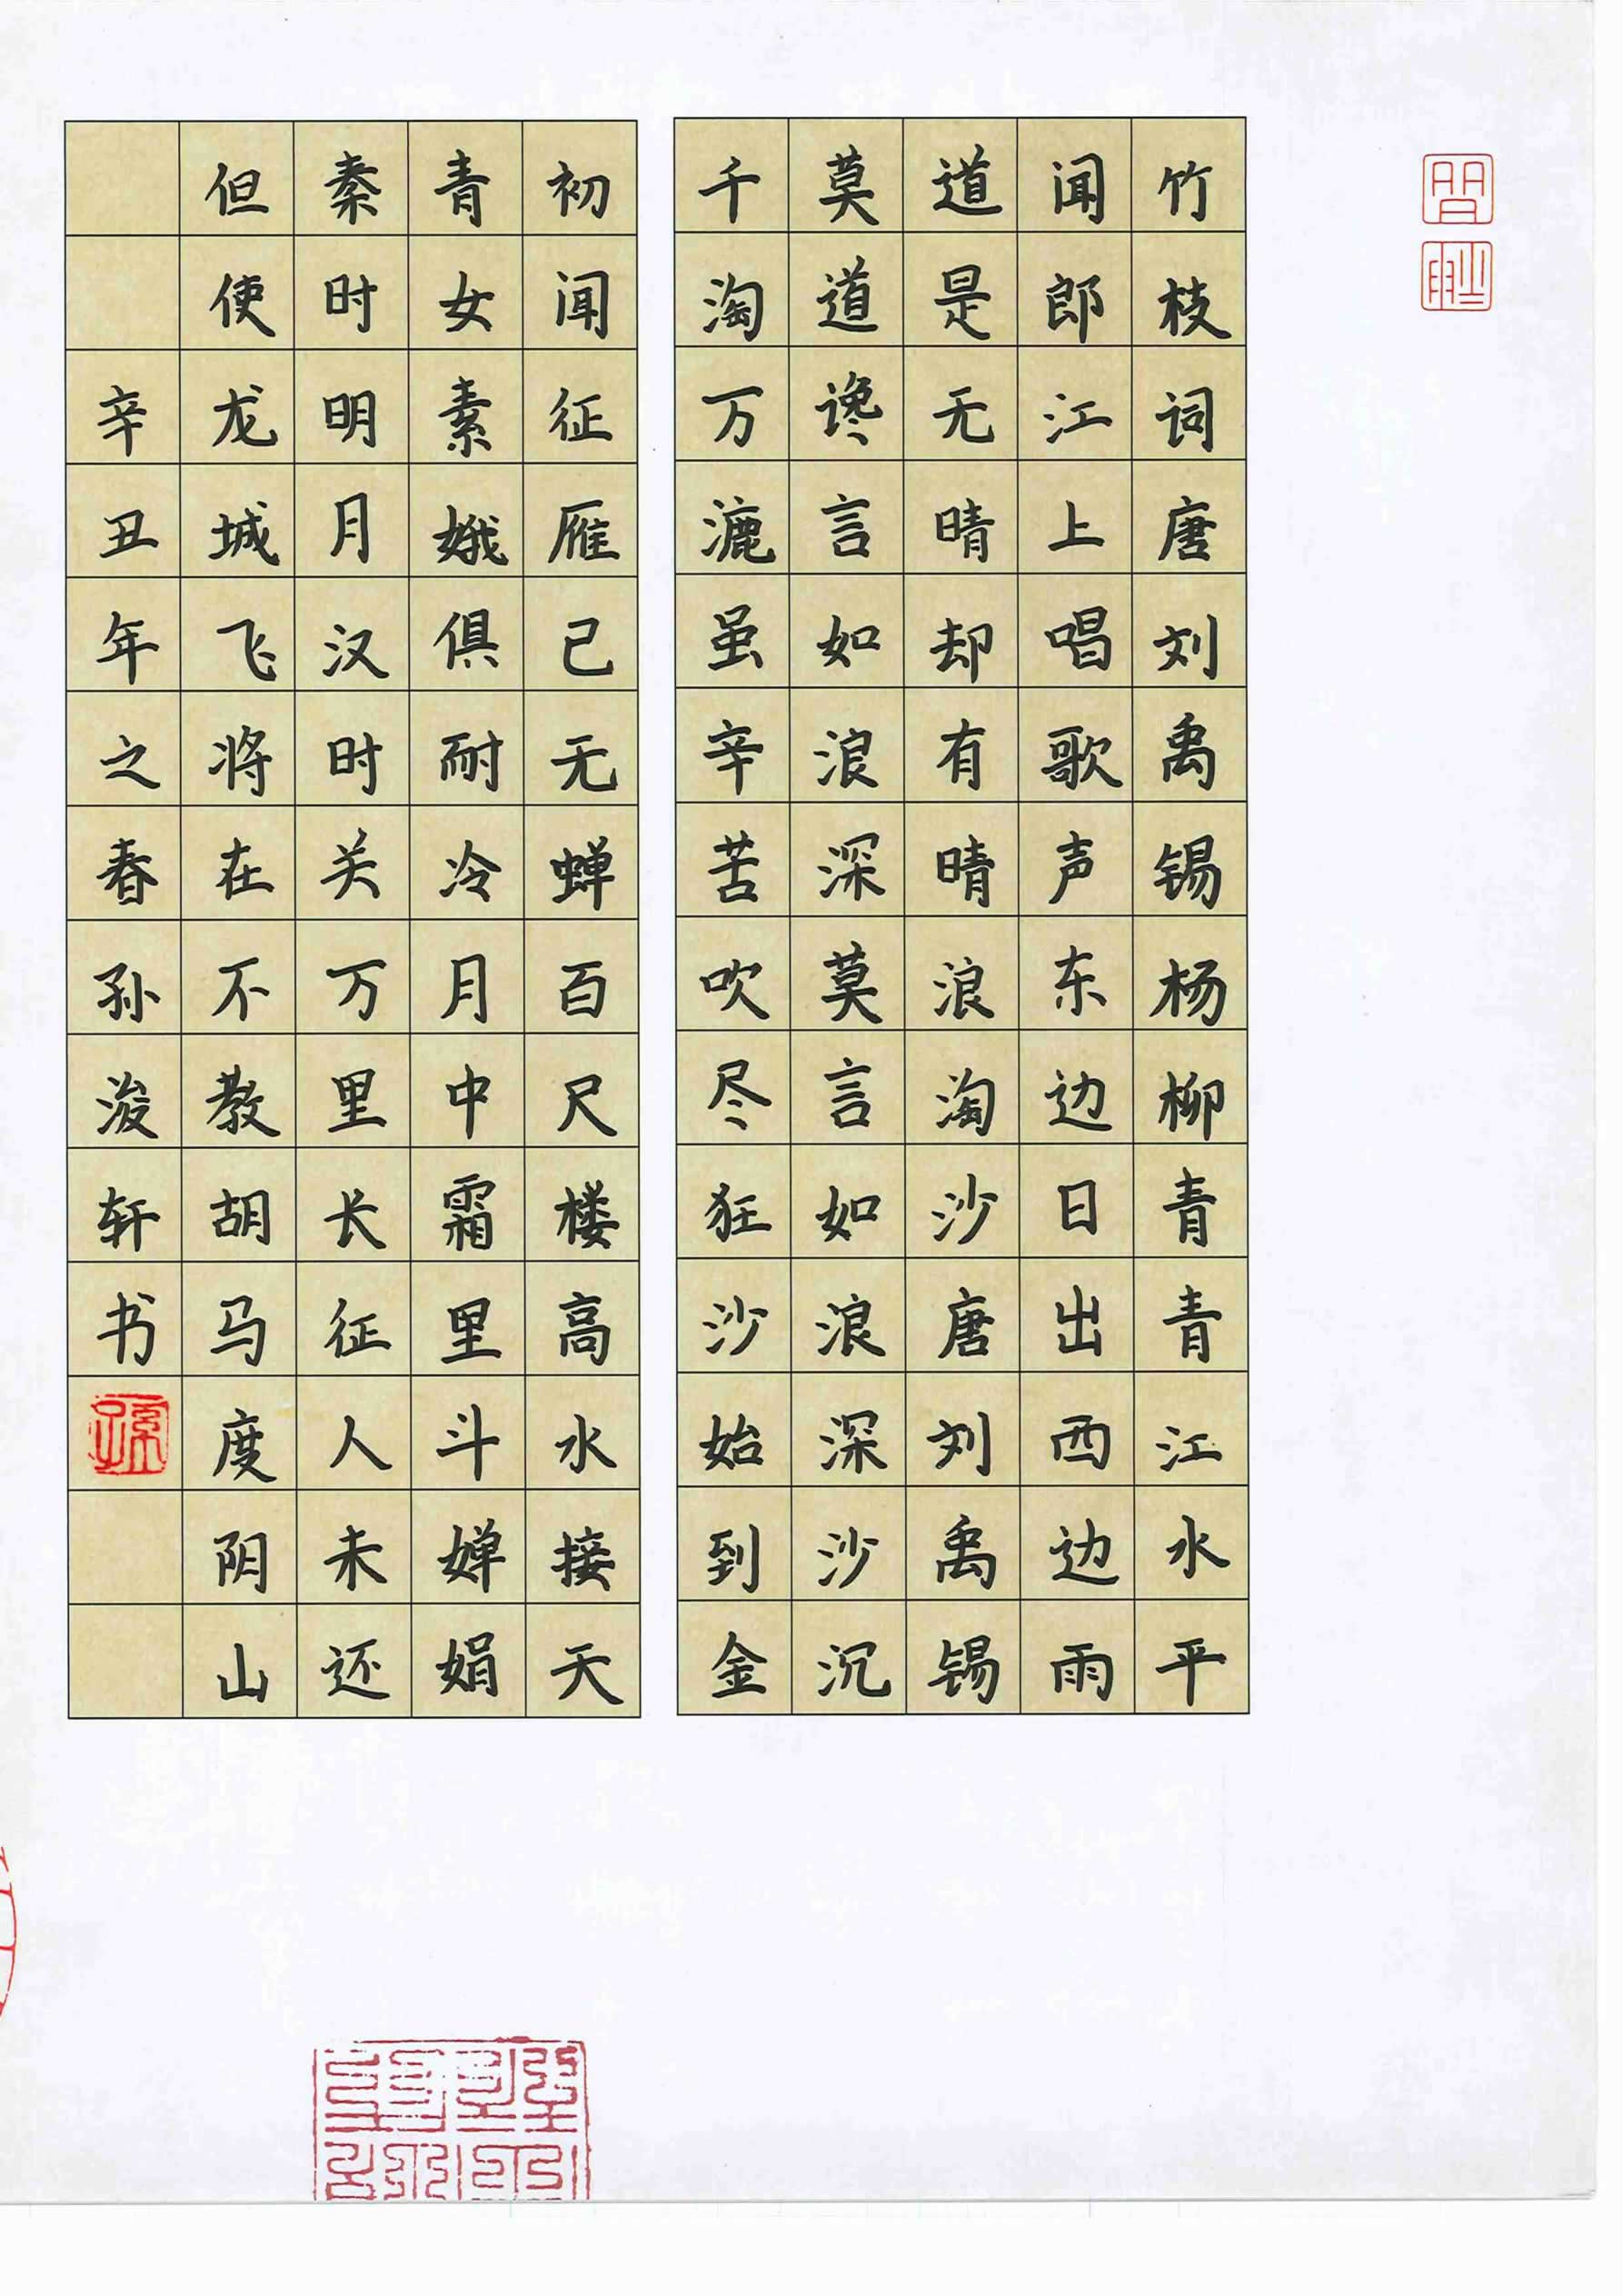 竹枝词唐刘禹锡杨柳青青江水平
闻郎江上唱歌声东边日出西边雨
道是无晴却有晴浪淘沙唐刘禹锡
莫道谗言如浪深莫言如浪深沙沉
千淘万漉虽辛苦吹尽狂沙始到金
初闻征雁已无蝉百尺楼高水接天
青女素娥俱耐冷月中霜里斗婵娟
秦时明月汉时关万里长征人未还
但使龙城飞将在不教胡马度阴山
辛丑年之春孙浚轩书
孫